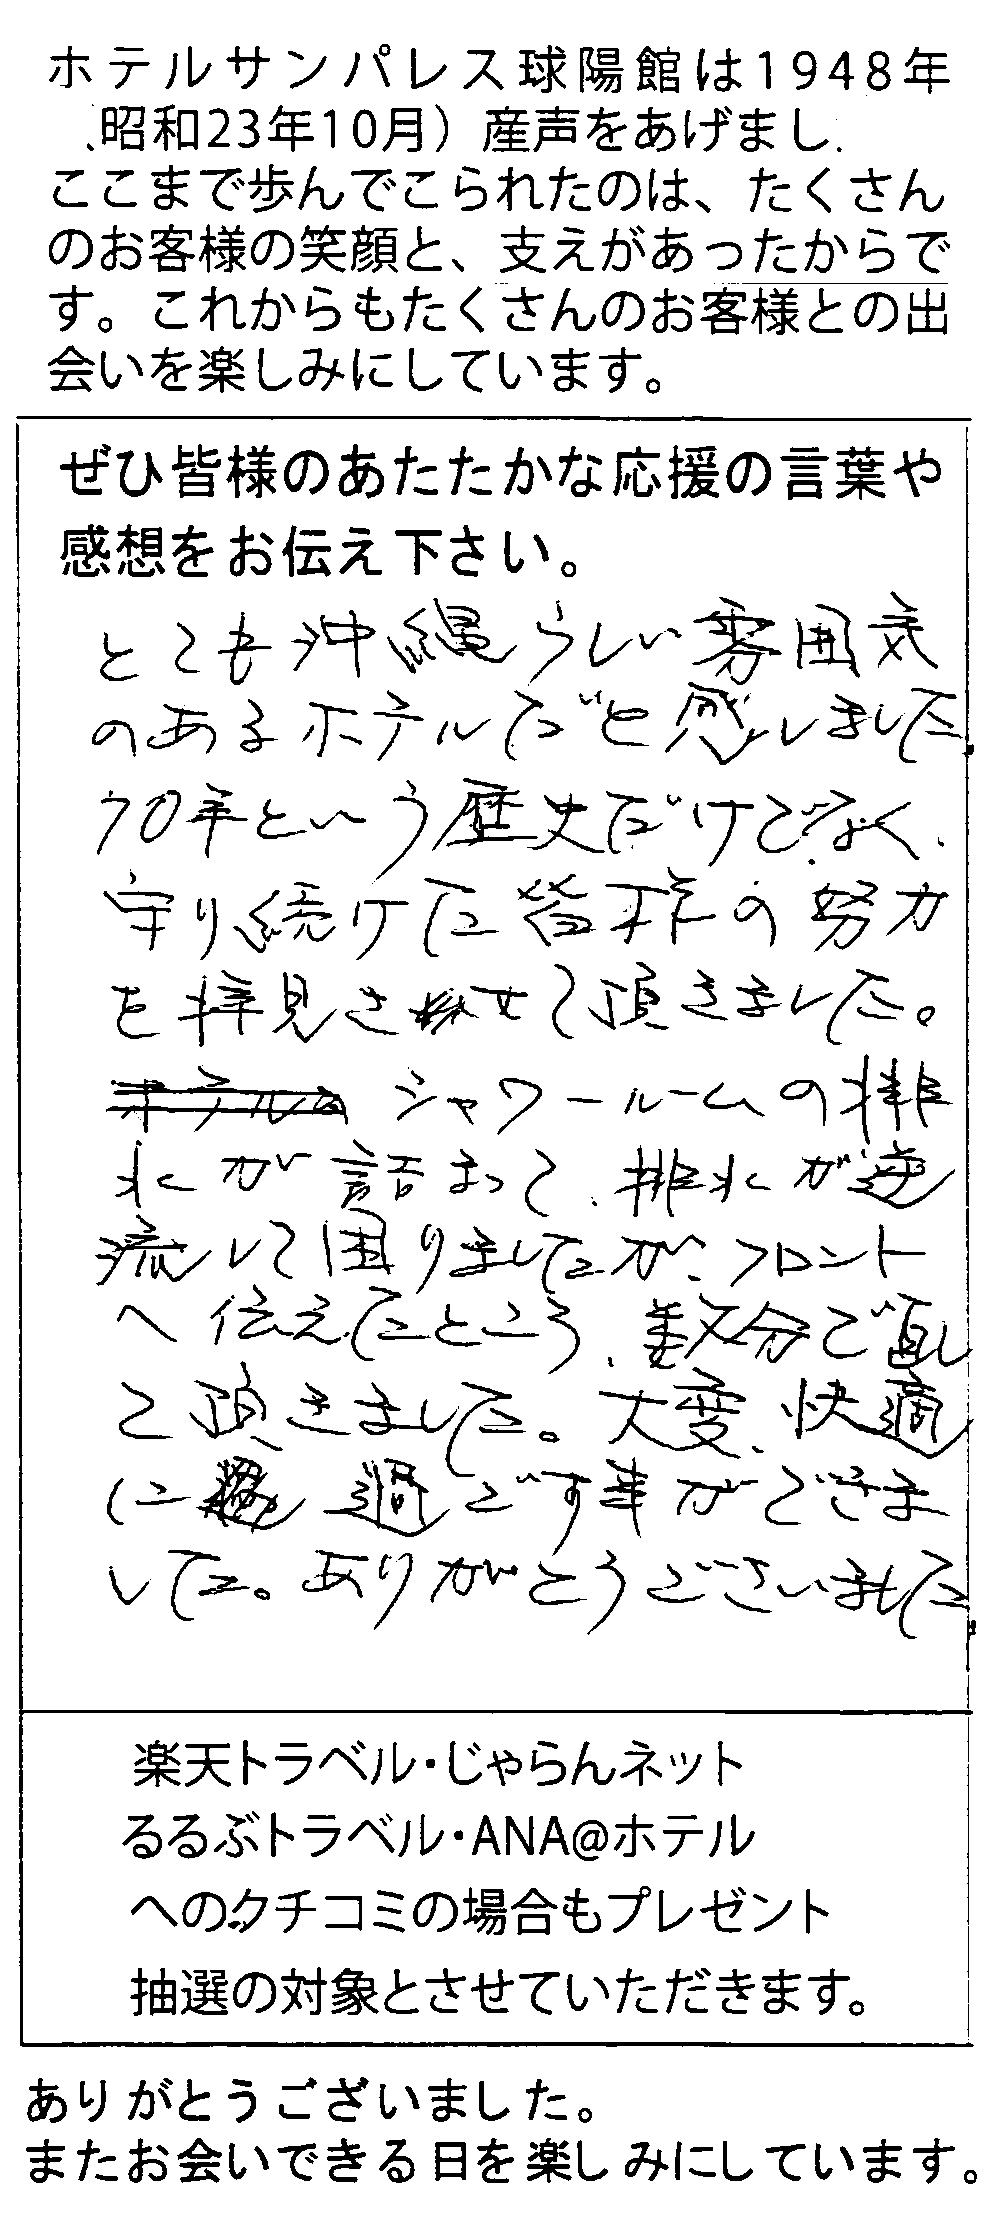 ホテルサンパレス球陽館は1948年
昭和23年10月）産声をあげまし
ここまで歩んでこられたのは、たくさん
のお客様の笑顔と、支えがあったからで
す。これからもたくさんのお客様との出
会いを楽しみにしています。
ぜひ皆様のあたたかな応援の言葉や
感想をお伝え下さい。
とても沖縄らしい雰囲気
のあるホテルだと感しました。
70年という歴史だけでなく、
守り続けた皆様の努力
を拝見させて頂きました。
シャワールームの排
水が詰まって、排水が逆
流して困りましたが、フロント
へ伝えたところ、数分で直し
て頂きました。大変、快適
に過ごす事ができま
した。ありがとうございました。
楽天トラベル・じゃらんネット
るるぶトラベル・ANA@ホテル
へのクチコミの場合もプレゼント
抽選の対象とさせていただきます。
ありがとうございました。
またお会いできる日を楽しみにしています。